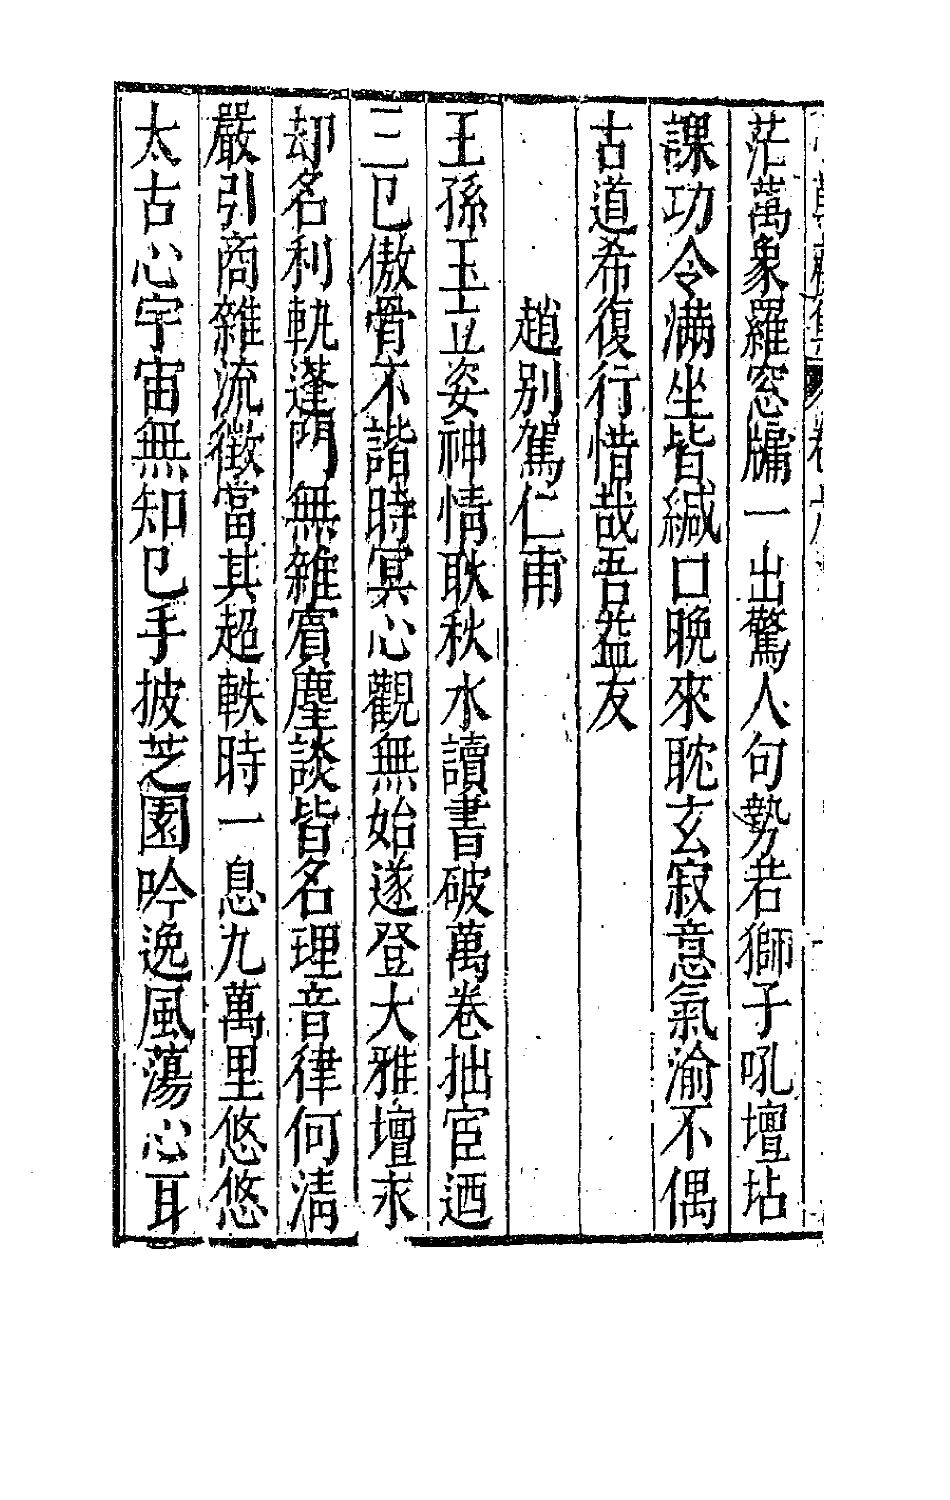 茫萬象羅窓牖一出驚人句勢若獅子吼壇坫
課功令滿坐皆緘口晩來耽玄寂意氣渝不偶
古道希復行惜哉吾益友
趙别駕仁甫
王孫玉立姿神情耿秋水讀書破萬卷拙宦迺
三已傲骨不諧時冥心觀無始遂登大雅壇求
却名利軌蓬門無雜賔麈談皆名理音律何清
嚴引商雜流徵當其超軼時一息九萬里悠悠
太古心宇宙無知已手披芝園吟逸風蕩心耳